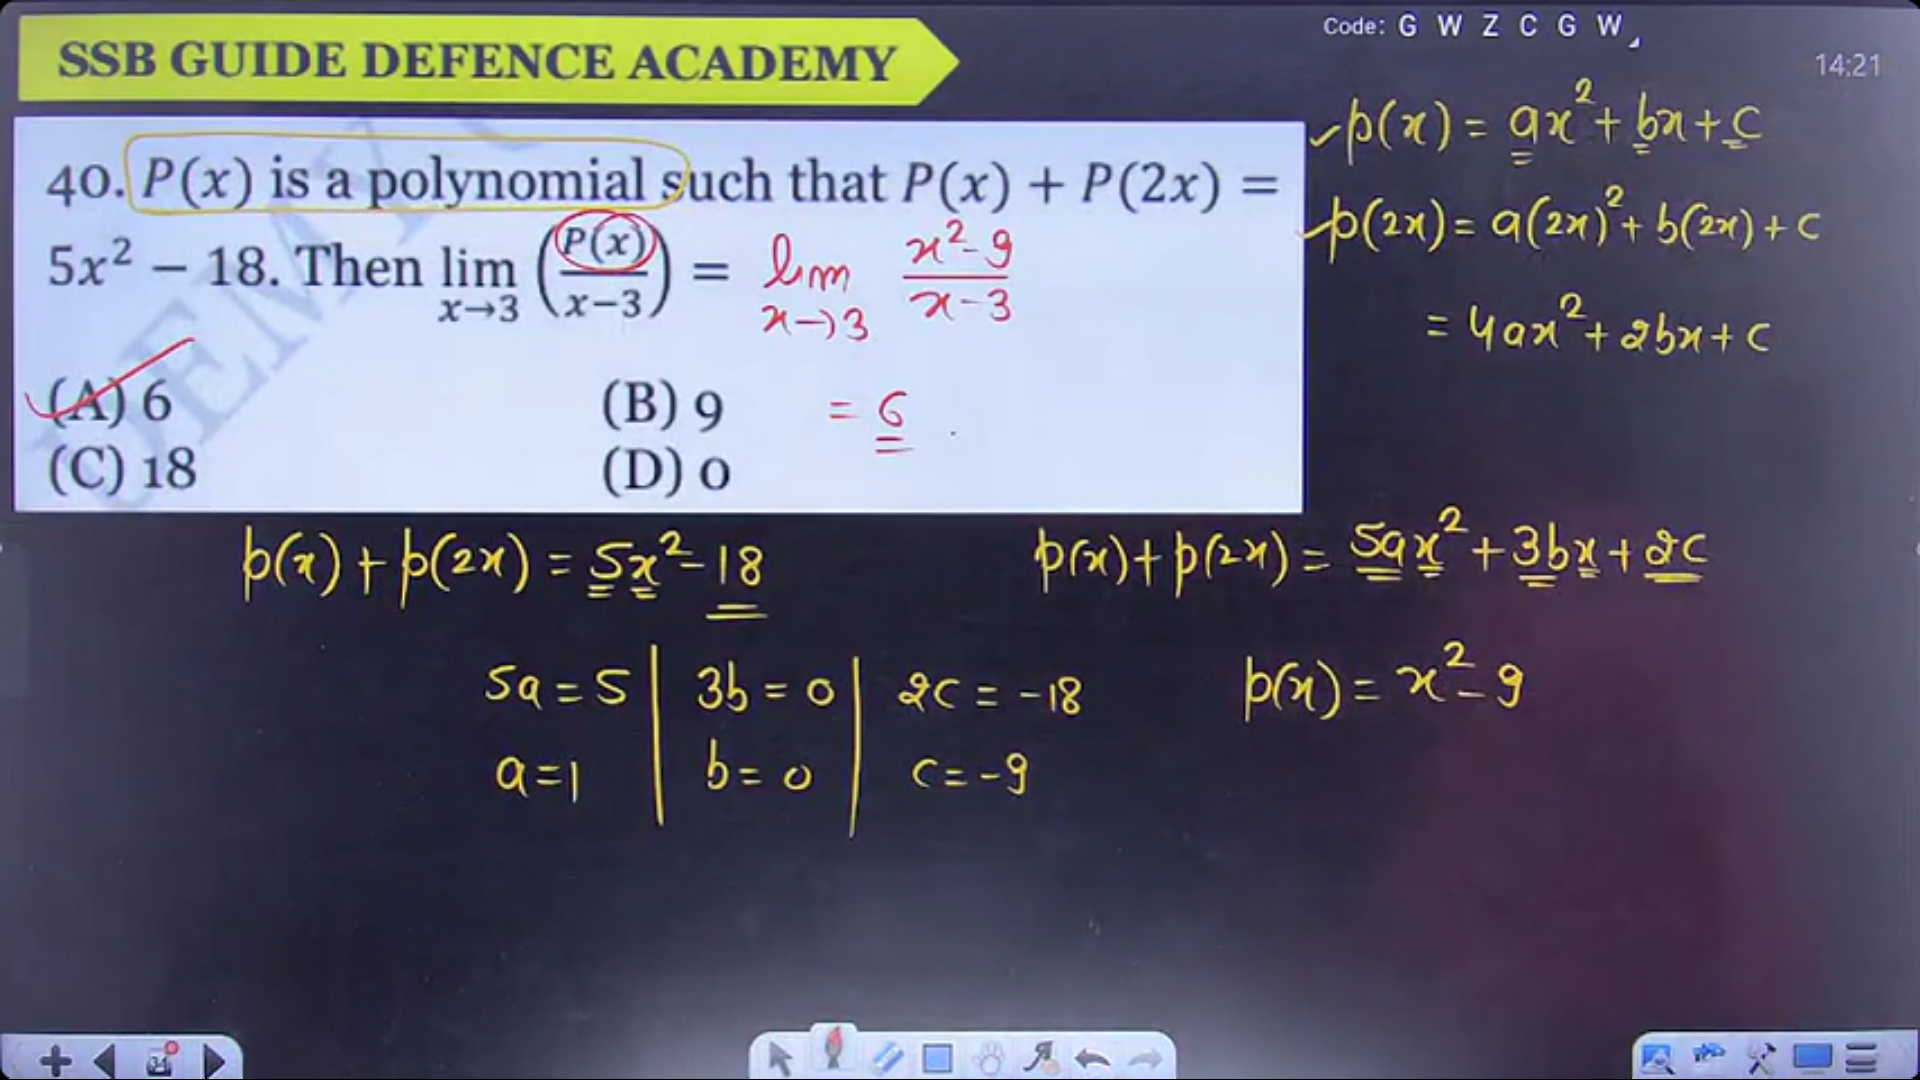 Code: G W Z C G W
14:21
SSB GUIDE DEFENCE ACADEMY
40. P(x) is a polynomial such that P(x) + P(2x) =
5x² − 18. Then lim x→3 (P(x)/x−3) = lim x→3 x²-9/x-3
(A) 6
(B) 9
= 6
(C) 18
(D) 0
p(x) = ax² + bx + c
p(2x) = a(2x)² + b(2x) + c
= 4ax² + 2bx + c
p(x) + p(2x) = 5x² - 18
p(x) + p(2x) = 5ax² + 3bx + 2c
5a = 5 | 3b = 0 | 2c = -18
a = 1 | b = 0 | c = -9
p(x) = x² - 9
34